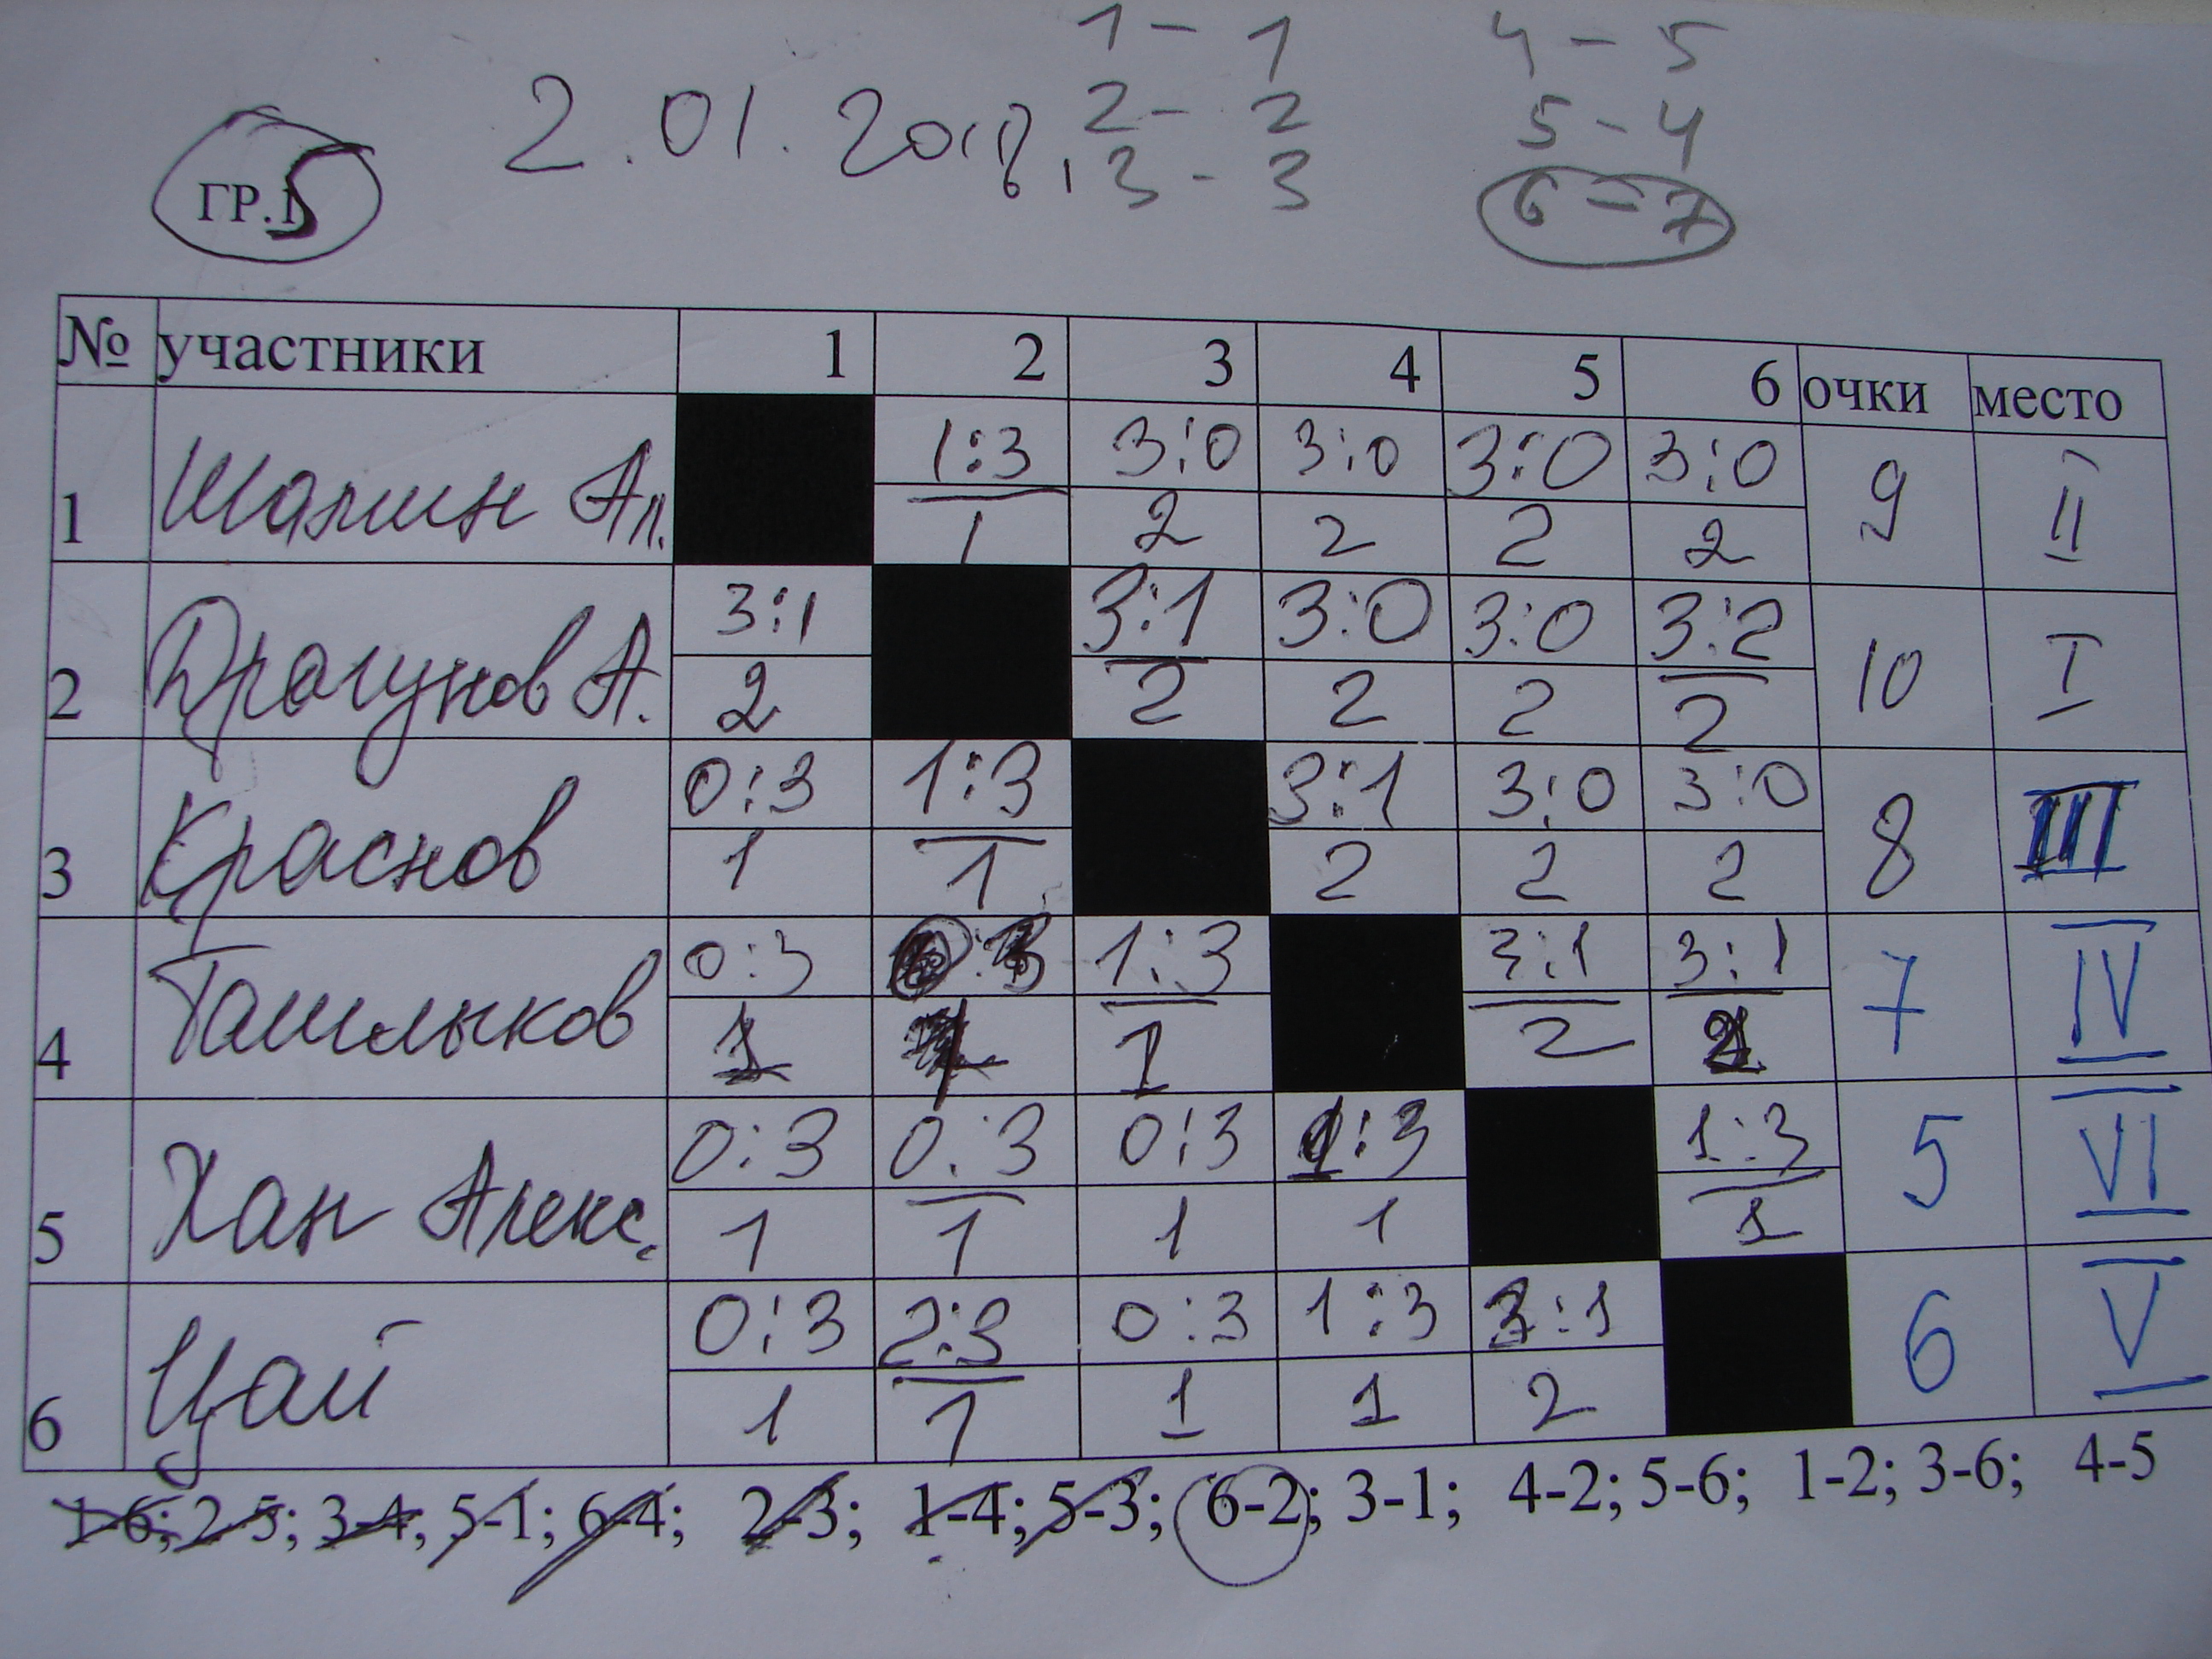 1 - 1
2 - 2
3 - 3
4 - 5
5 - 4
6 = 7
2.01.2018.
ГР.5
№ участники 1 2 3 4 5 6 очки место
1 Шалин Ал. 1:3 3:0 3:0 3:0 3:0 9 II
1 2 2 2 2
2 Драгунов А. 3:1 3:1 3:0 3:0 3:2 10 I
2 2 2 2 2
3 Краснов 0:3 1:3 3:1 3:0 3:0 8 III
1 1 2 2 2
4 Ташлыков 0:3 0:3 1:3 3:1 3:1 7 IV
1 1 1 2 2
5 Хан Алекс. 0:3 0:3 0:3 1:3 1:3 5 VI
1 1 1 1 1
6 Цай 0:3 2:3 0:3 1:3 3:1 6 V
1 1 1 1 2
1-6; 2-5; 3-4; 5-1; 6-4; 2-3; 1-4; 5-3; 6-2; 3-1; 4-2; 5-6; 1-2; 3-6; 4-5